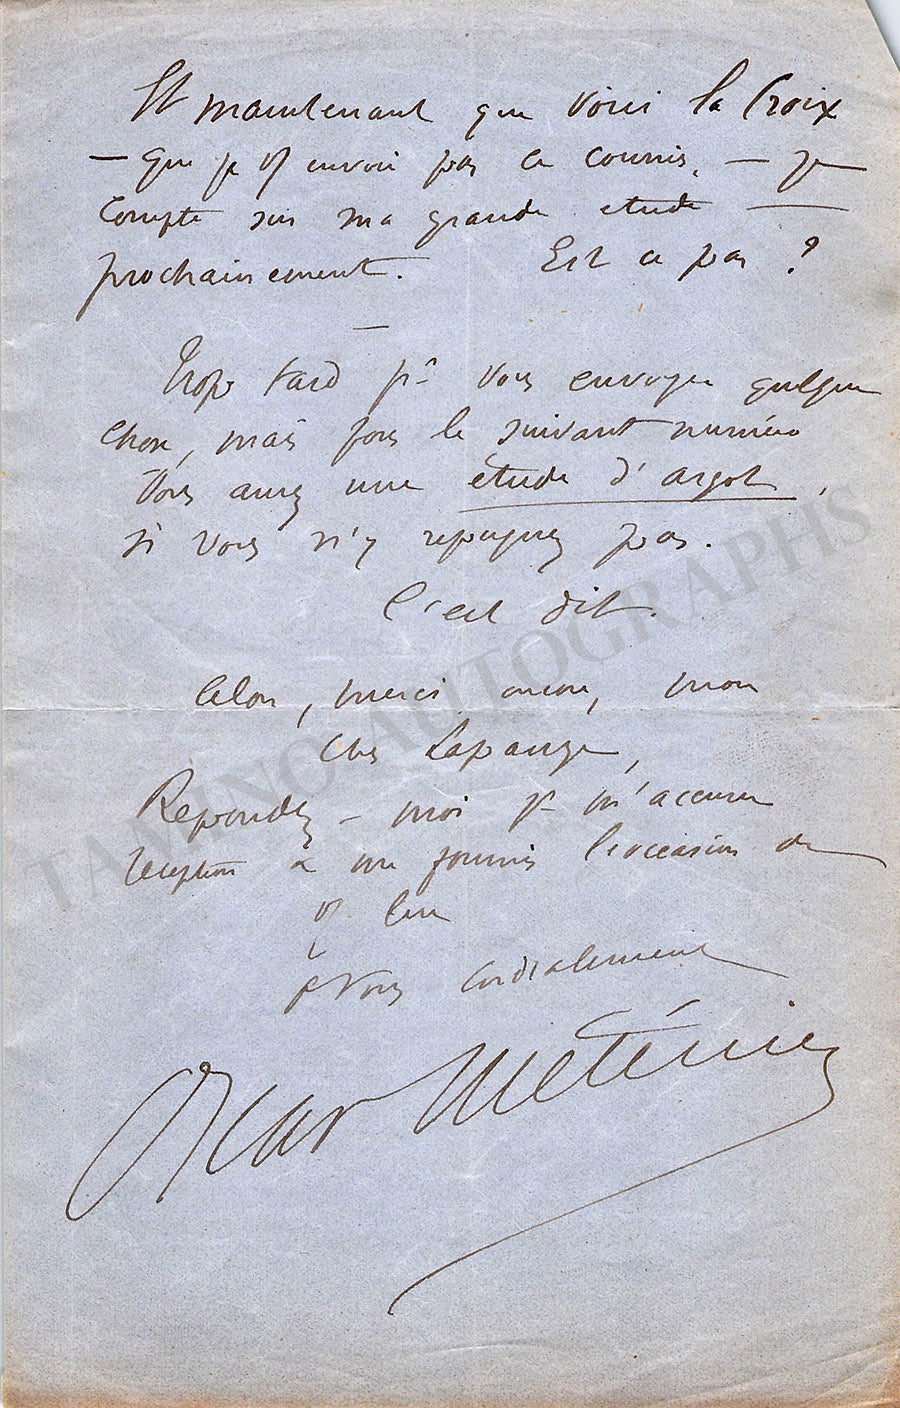 Et maintenant que voici la Croix
— que je vs envoie par ce courrier, — je
compte sur ma grande étude
prochainement. Est ce pas ?
—
Trop tard pr vous envoyer quelque
chose, mais pour le suivant numéro
Vous aurez une étude d'argot,
si vous n'y répugnez pas.
C'est dit.
merci encore, mon
cher Lapauze,
Répondez-moi pr m'accuser
réception & me fournir l'occasion de
vs lire
à Vous cordialement
Oscar Méténier
TAMINO AUTOGRAPHS